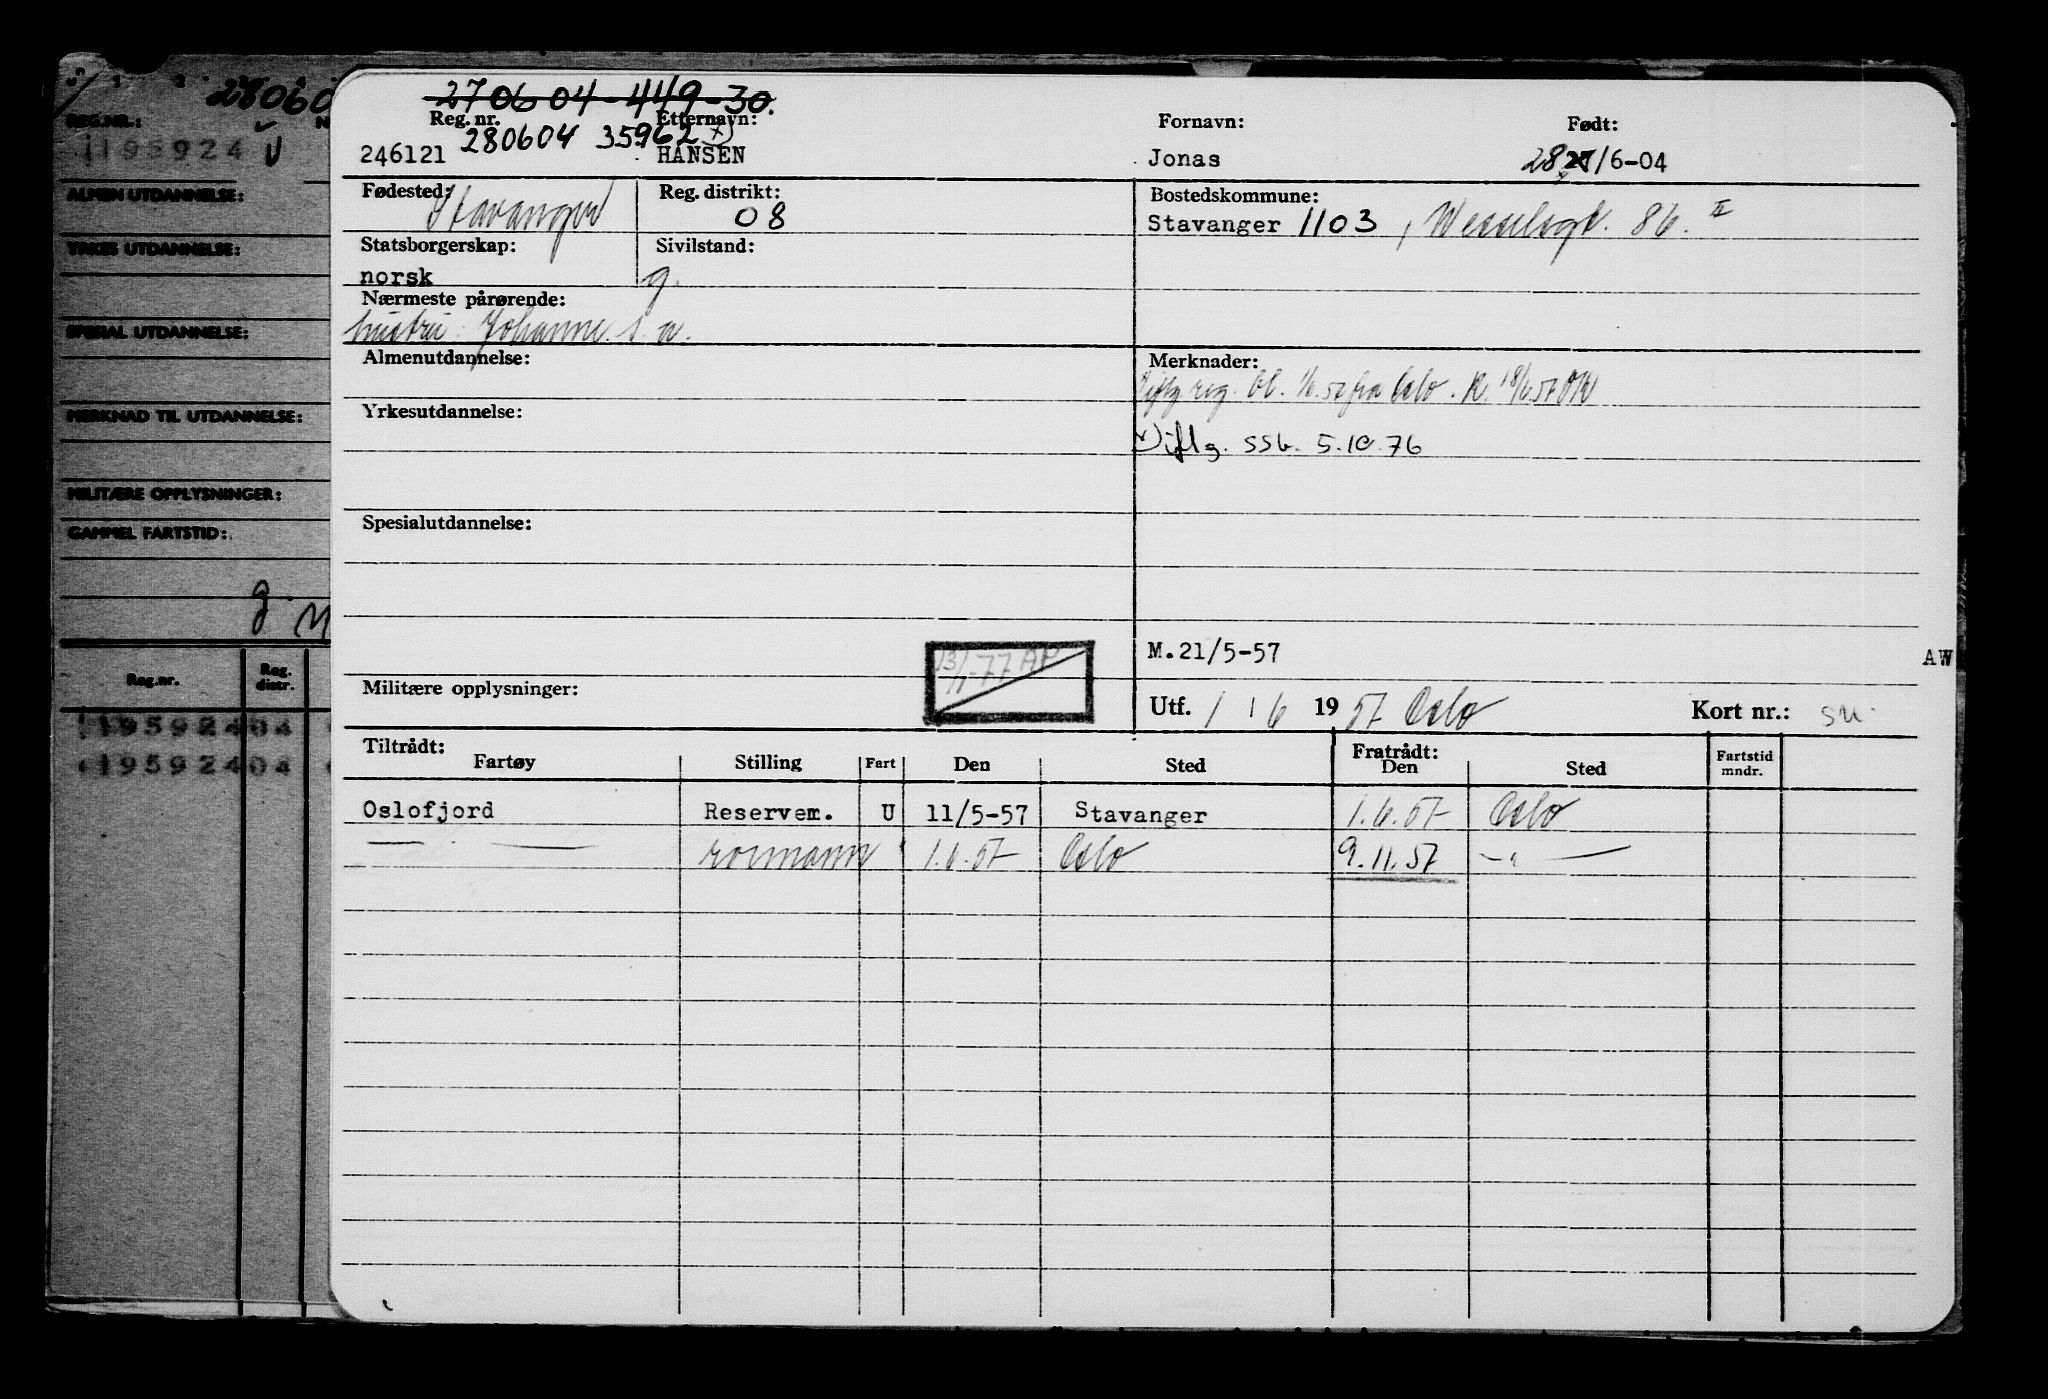 28060
REG.NR.:
195924 U
ALMEN UTDANNELSE:
YRKES UTDANNELSE:
SPESIAL UTDANNELSE:
MERKNAD TIL UTDANNELSE:
MILITÆRE OPPLYSNINGER:
GAMMEL FARTSTID:
g.
Reg.nr. Reg. distr.
195924 04
195924 04
270604-449-30.
Reg. nr. Etternavn: Fornavn: Født:
280604 35962 x)
246121 HANSEN Jonas 28 27/6-04
Fødested: Reg. distrikt: Bostedskommune:
Stavanger 08 Stavanger 1103, Wesselsgt. 86. II
Statsborgerskap: Sivilstand:
norsk g.
Nærmeste pårørende:
hustru: Johanne. s.a.
Almenutdannelse: Merknader:
reg. bl. 1/6.57 fra Oslo. R. 18/6.57
Yrkesutdannelse:
x) iflg. ssb. 5.10.76
Spesialutdannelse:
M.21/5-57 AW
13/1-77 AP
Militære opplysninger: Utf. 1/6 1957 Oslo Kort nr.:
Tiltrådt: Fratrådt:
Fartøy Stilling Fart Den Sted Den Sted Fartstid mndr.
Oslofjord Reservem. U 11/5-57 Stavanger 1.6.57 Oslo
— " — rormann " 1.6.57 Oslo 9.11.57 — " —